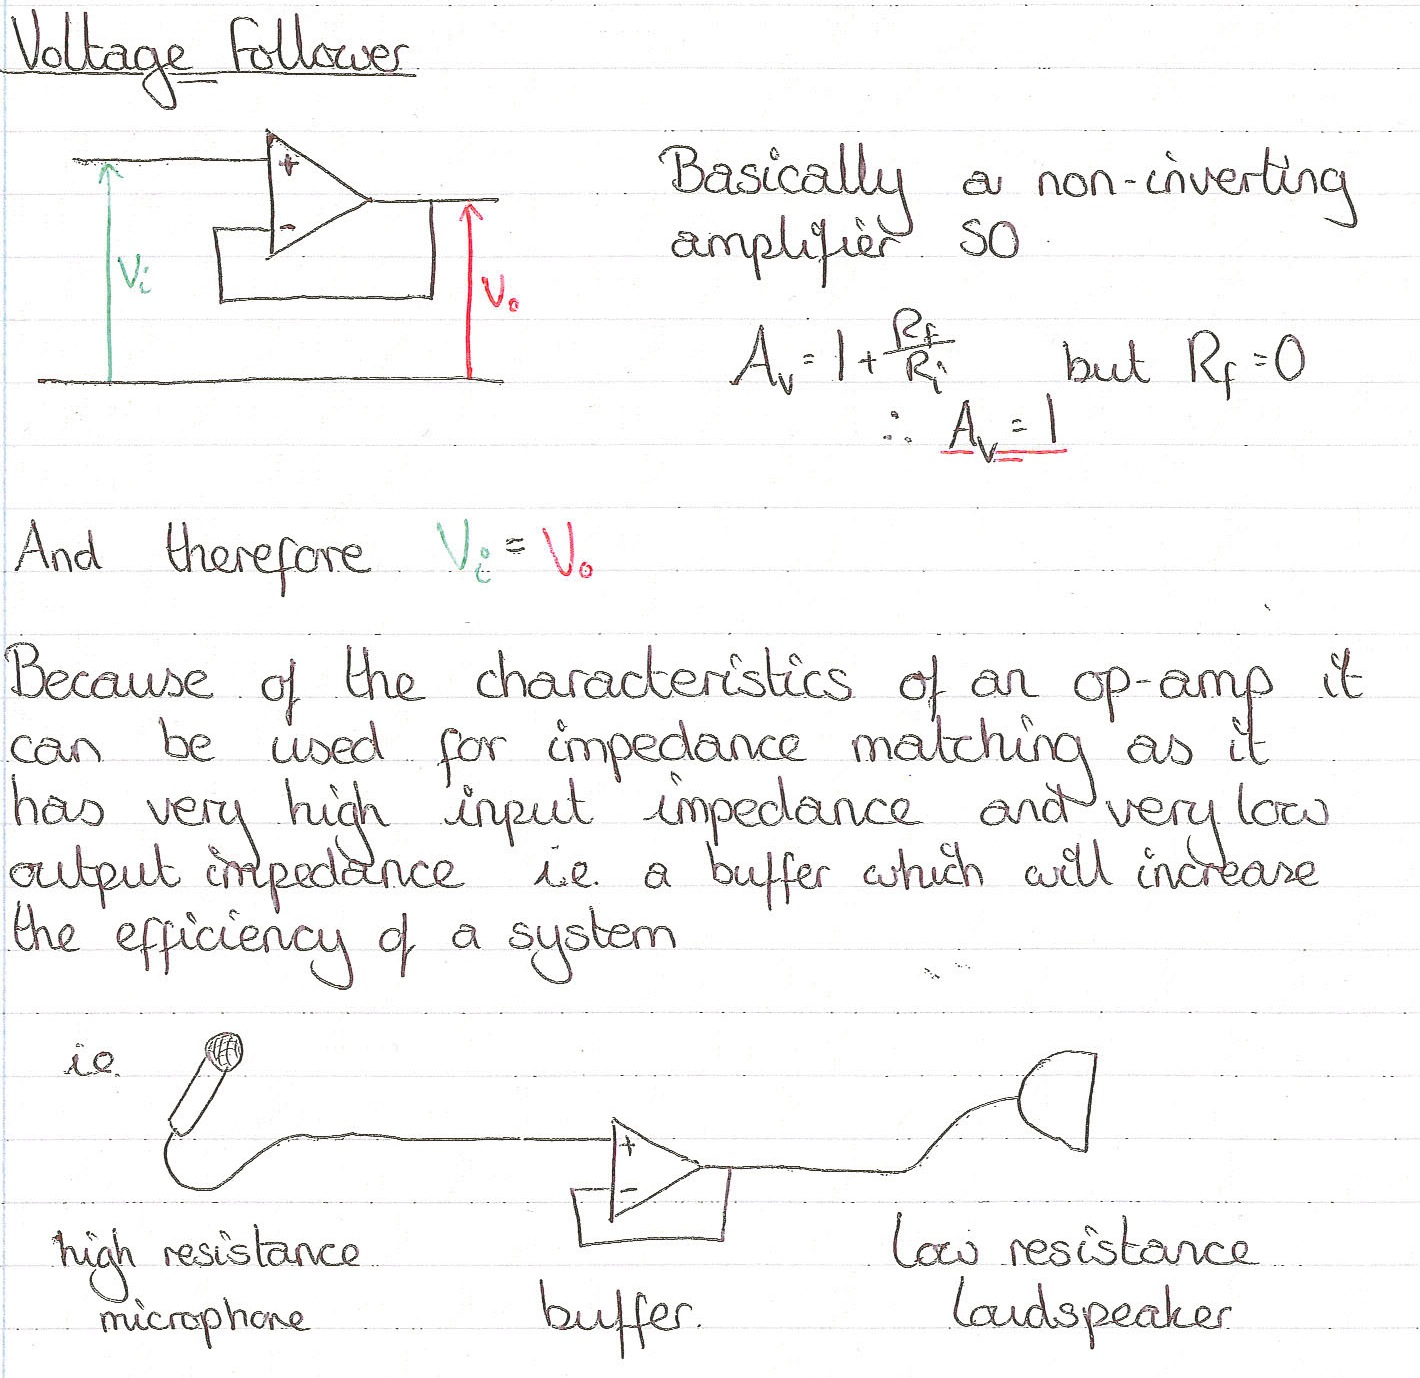 Voltage Follower
+
-
Vi
Vo
Basically a non-inverting
amplifier so
Av = 1 + Rf/Ri but Rf = 0
∴ Av = 1
And therefore Vi = Vo
Because of the characteristics of an op-amp it
can be used for impedance matching as it
has very high input impedance and very low
output impedance i.e. a buffer which will increase
the efficiency of a system
ie.
+
-
high resistance
microphone
buffer.
low resistance
loudspeaker